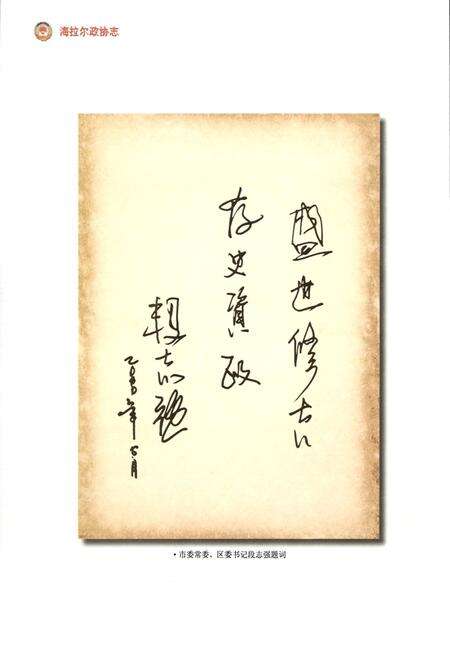 海拉尔政协志
盛世修志
存史資政
段志强
二〇〇八年六月
•市委常委、区委书记段志强题词